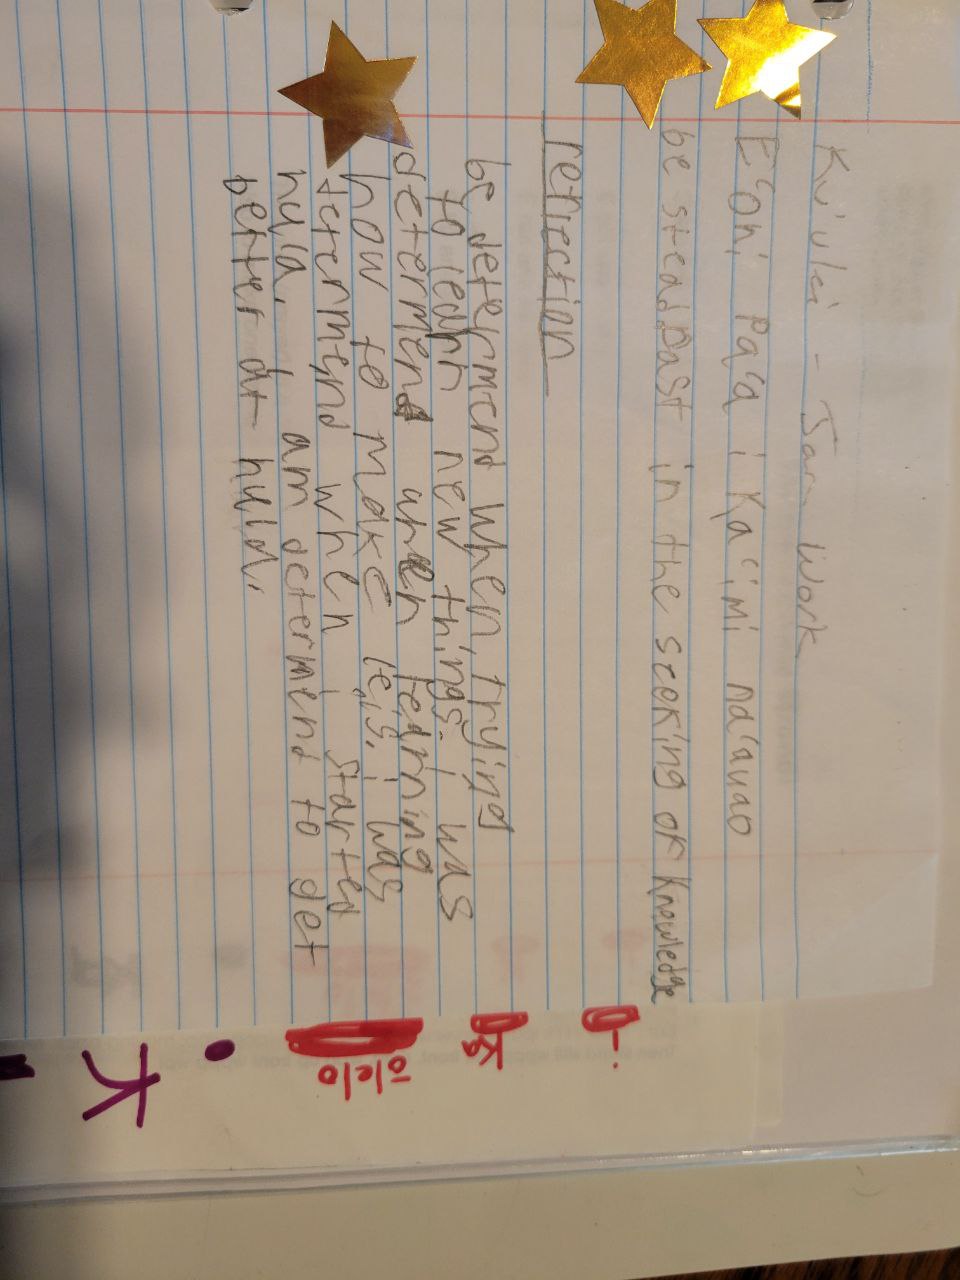 Ku'ulei - Jam Work
E ʻoni Paʻa i Kaʻimi naʻauao
be steadfast in the seeking of Knowledge
reflection
be determend when trying
to learn new things. I was
determend when learning
how to make lei's. i was
determend when i started
hula. I am determend to get
better at hula.
i
Ka
ōlelo
K